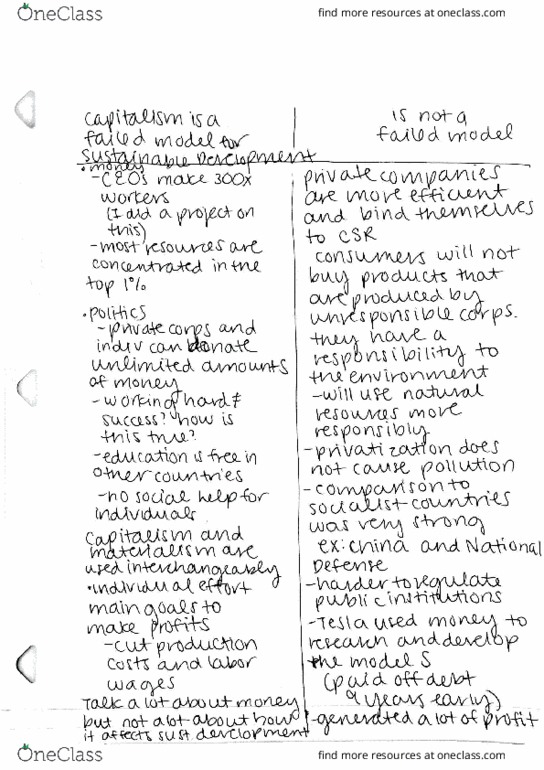 OneClass
find more resources at oneclass.com
capitalism is a
failed model for
sustainable development
• money
- CEOs make 300x
workers
(I did a project on
this)
- most resources are
concentrated in the
top 1%
• politics
- private corps and
indiv can donate
unlimited amounts
of money
- working hard ≠
success? how is
this true?
- education is free in
other countries
- no social help for
individuals
Capitalism and
materialism are
used interchangeably
• individual effort
main goals to
make profits
- cut production
costs and labor
wages
Talk a lot about money
but not a lot about how
it affects sust. development
is not a
failed model
private companies
are more efficient
and bind themselves
to CSR
consumers will not
buy products that
are produced by
unresponsible corps.
they have a
responsibility to
the environment
- will use natural
resources more
responsibly
- privatization does
not cause pollution
- comparison to
socialist countries
was very strong
ex: china and National
Defense
- harder to regulate
public institutions
- Tesla used money to
research and develop
the model S
(paid off debt
9 years early)
- generated a lot of profit
OneClass
find more resources at oneclass.com